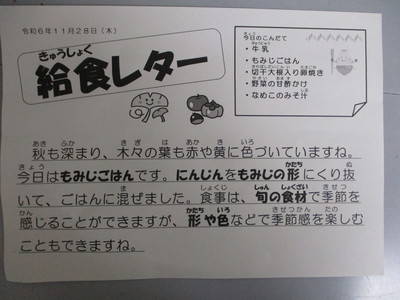 令和6年11月28日（木）
給食レター
今日のこんだて
・牛乳
・もみじごはん
・切干大根入り卵焼き
・野菜の甘酢かけ
・なめこのみそ汁
秋も深まり、木々の葉も赤や黄に色づいていますね。
今日はもみじごはんです。にんじんをもみじの形にくり抜
いて、ごはんに混ぜました。食事は、旬の食材で季節を
感じることができますが、形や色などで季節感を楽しむ
こともできますね。